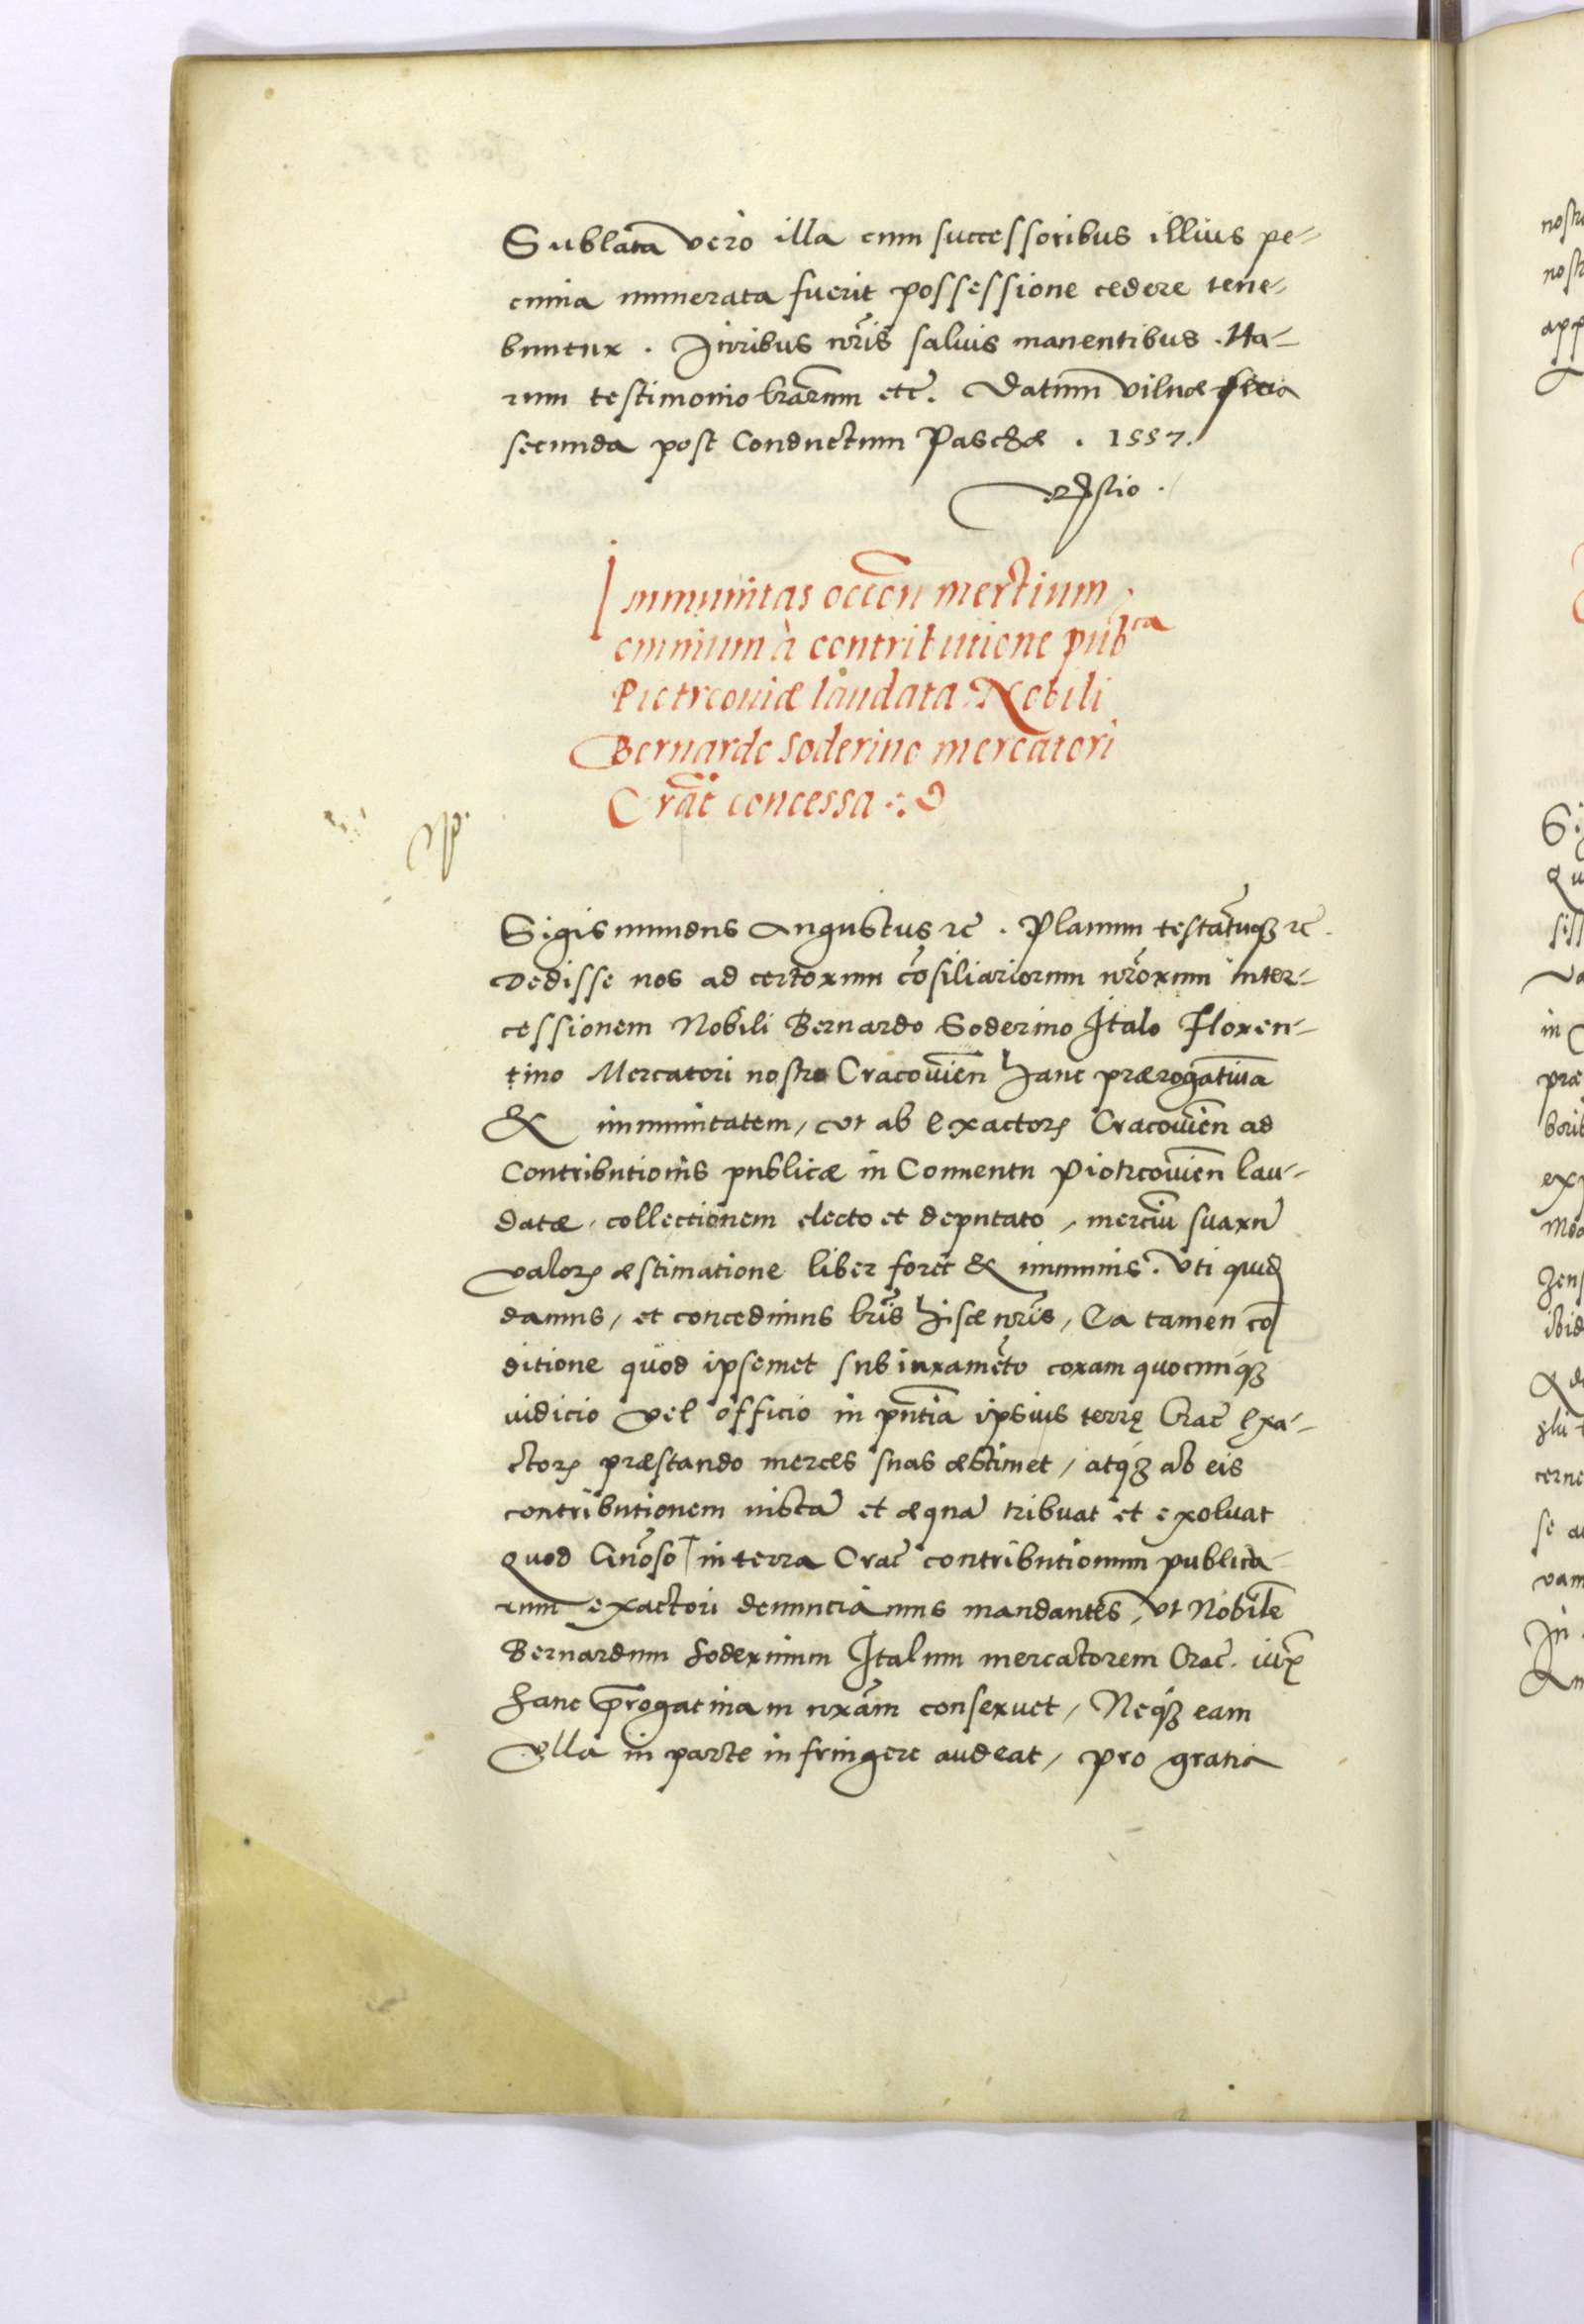 Sublata͠ vero illa cum successoribus illius pe-
cunia numerata fuerit possessione cedere tene-
buntur. Iuribus nr͠is saluis manentibus. Ha-
rum testimonio lr͠arum etc͠. Datum Vilnæ feria
secunda post Conductum Paschæ. 1557.
Immunitas occ͠on mertium
omnium à contributione pubᶜᵃ
Pietrcouiæ laudata Nobili
Bernardo Soderino mercatori
Crac͠ concessa
Sigismundus Augustus rc͠. Planum testatu͠qꝫ rc͠.
Dedisse nos ad certorum co͠siliariorum nr͠orum inter-
cessionem Nobili Bernardo Soderino Italo Floren-
tino Mercatori nostro Cracouien͠ hanc prærogatiua͠
& immunitatem, vt ab exactorꝫ Cracouien͠ ad
Contributionis publicæ in Conuentu Piotrcouien͠ lau-
datæ, collectionem electo et deputato, merciu͠ suaru͠
valorꝫ æstimatione liber foret & immunis. Vti quidꝫ
damus, et concedimus lr͠is hisce nr͠is, Ea tamen co͠
ditione quòd ipsemet sub iurame͠to coram quocunqꝫ
iudicio vel officio in pn͠tia ipsius terrę Crac͠ exa-
ctorꝫ præstando merces suas æstimet, atqꝫ ab eis
contributionem iusta͠ et æqua͠ tribuat et exoluat
Quod Gn͠oso in terra Crac͠ contributionum publica-
rum exactori denunciamus mandantes, vt Nobile͠
Bernardum Soderinum Italum mercatorem Crac͠. iux͠
hanc p͠rogatiuam nr͠am conseruet, Neqꝫ eam
vlla in parte infringere audeat, pro gratia